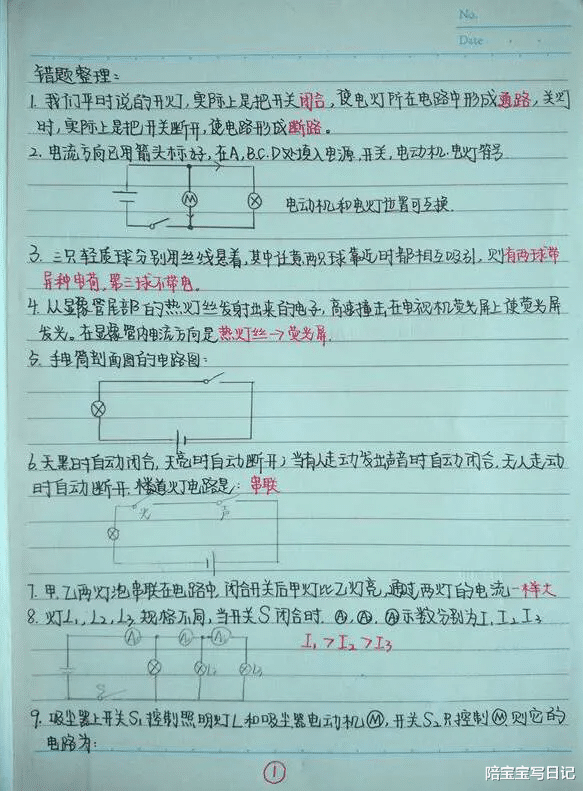 No.
Date
错题整理:
1. 我们平时说的开灯,实际上是把开关闭合,使电灯所在电路中形成通路,关灯
时,实际上是把开关断开,使电路形成断路。
2. 电流方向已用箭头标好,在A,B.C.D处填入电源,开关,电动机.电灯符号
M
电动机和电灯位置可互换.
3. 三只轻质球分别用丝线悬着,其中任意两只球靠近时都相互吸引,则有两球带
异种电荷,第三球不带电。
4. 从显像管尾部的热灯丝发射出来的电子,高速撞击在电视机荧光屏上使荧光屏
发光。在显像管内电流方向是热灯丝→荧光屏.
5. 手电筒剖面图的电路图:
6. 天黑时自动闭合,天亮时自动断开;当有人走动发出声音时自动闭合,无人走动
时自动断开.楼道灯电路是:串联
光 声
7. 甲.乙两灯泡串联在电路中,闭合开关后甲灯比乙灯亮,通过两灯的电流一样大
8. 灯L1,L2,L3规格不同,当开关S闭合时.A1,A2,A3示数分别为I1 I2 I3
I1>I2>I3
L2 L3
S
9. 吸尘器上开关S1控制照明灯L和吸尘器电动机M,开关S2只控制M则它的
电路为:
1
陪宝宝写日记